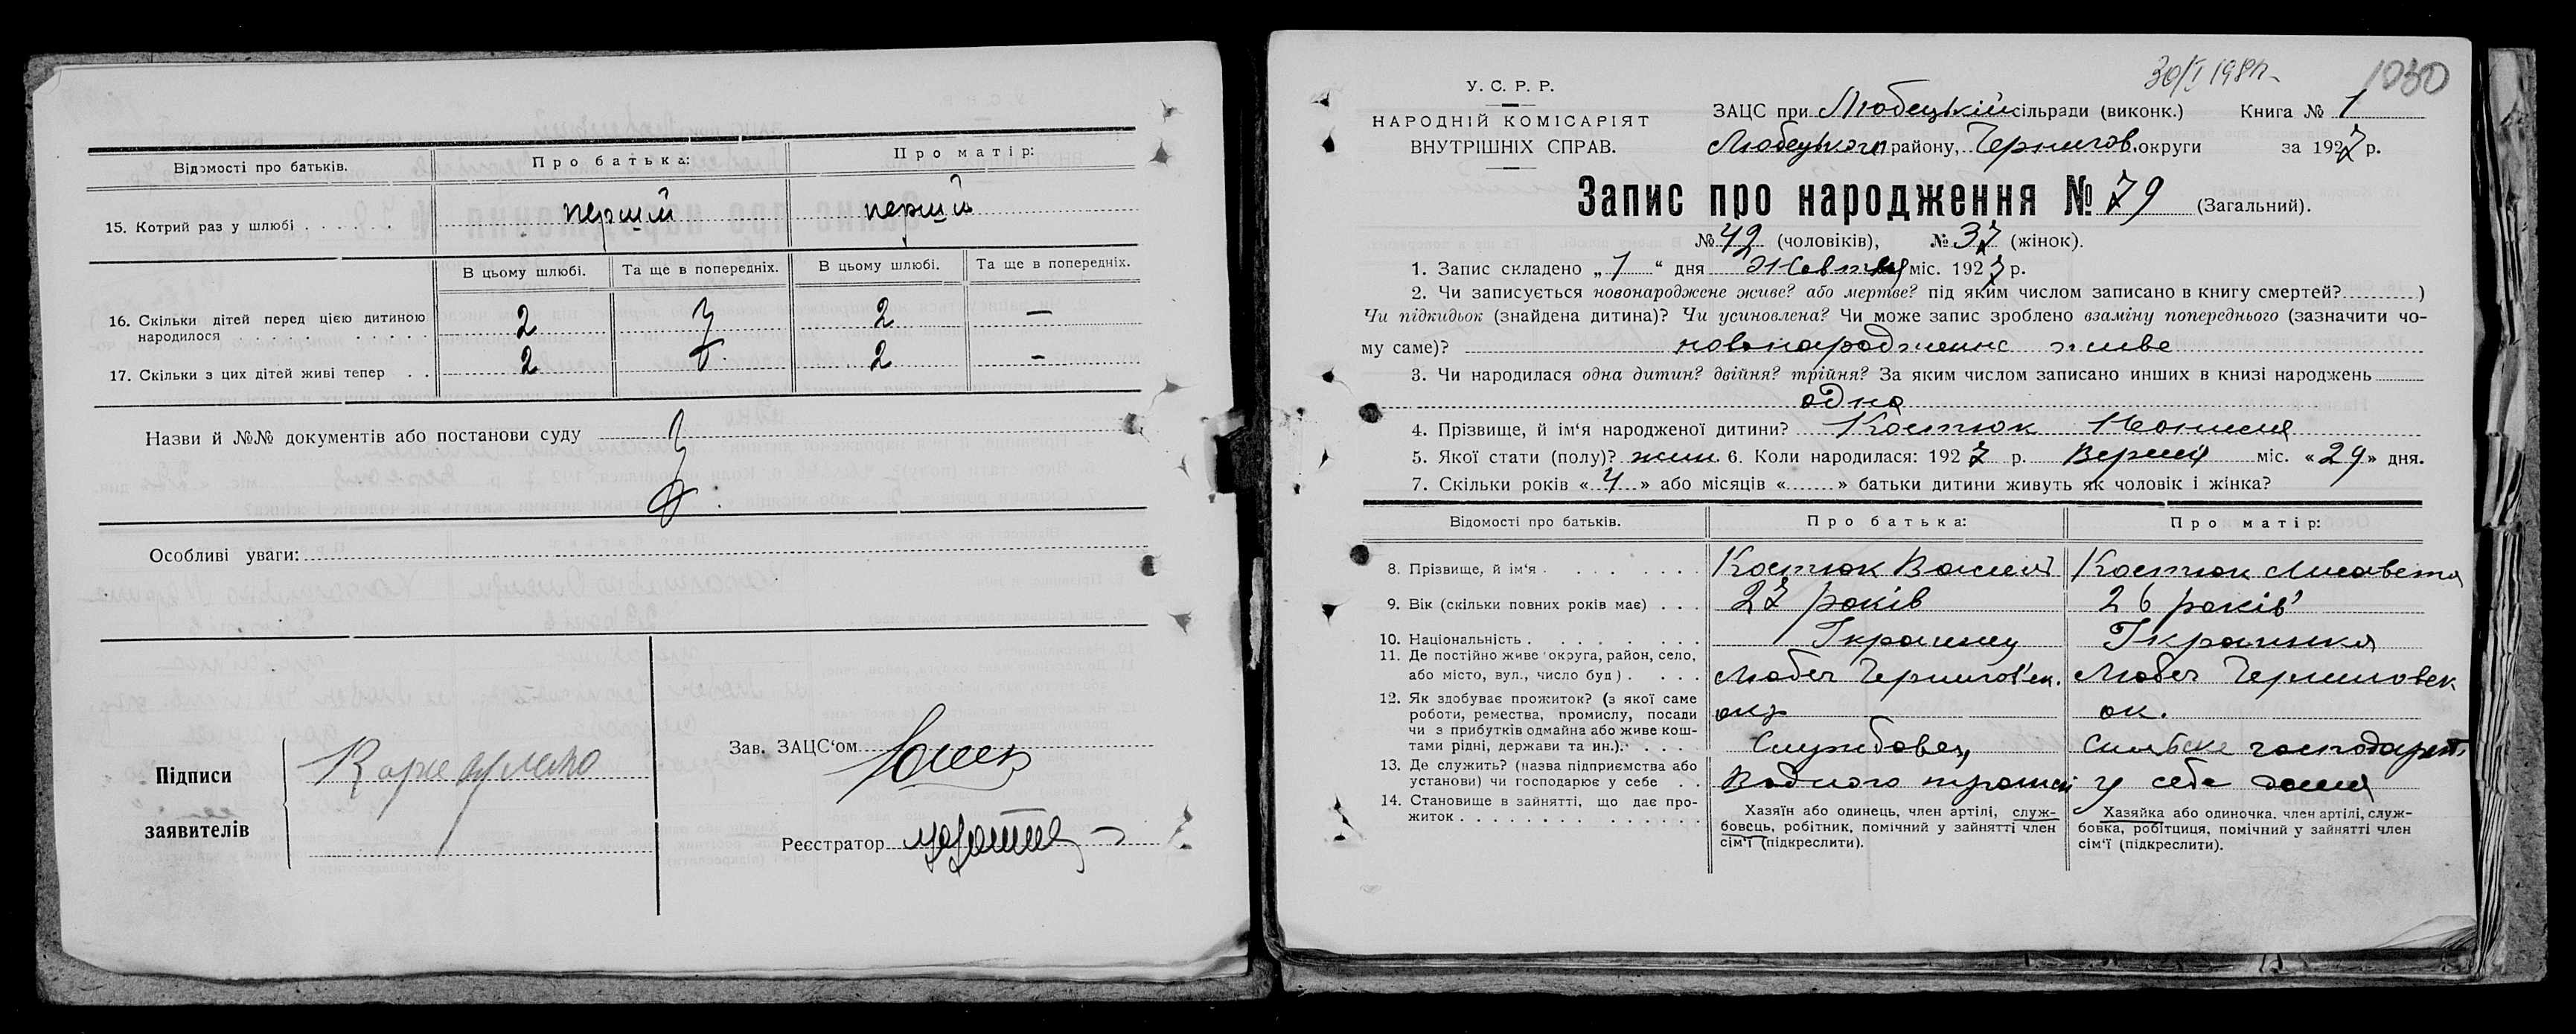 Відомості про батьків.
Про батька:
Про матір:
15. Котрий раз у шлюбі . . . . . .
перший
перший
В цьому шлюбі.
Та ще в попередніх.
В цьому шлюбі.
Та ще в попередніх.
16. Скільки дітей перед цією дитиною
народилося . . . . . . . . .
2
2
—
17. Скільки з цих дітей живі тепер . .
2
2
—
Назви й №№ документів або постанови суду
Особливі уваги:
Підписи
заявителів
Зав. ЗАЦС'ом
Реєстратор
30/I 198
1030
У. С. Р. Р.
НАРОДНІЙ КОМІСАРІЯТ
ВНУТРІШНІХ СПРАВ.
ЗАЦС при Любецькій сільради (виконк.) Книга № 1
Любецького району, Чернигов. округи за 1927 р.
Запис про народження № 79 (Загальний).
№ 42 (чоловіків), № 37 (жінок).
1. Запис складено „ 1 “ дня Жовтня міс. 1927 р.
2. Чи записується новонароджене живе? або мертве? під яким числом записано в книгу смертей? )
Чи підкидьок (знайдена дитина)? Чи усиновлена? Чи може запис зроблено взаміну попереднього (зазначити чо-
му саме)? новонароджене живе
3. Чи народилася одна дитин? двійня? трійня? За яким числом записано инших в книзі народжень
одна
4. Прізвище, й ім'я народженої дитини? Костюк
5. Якої стати (полу)? жин. 6. Коли народилася: 1927 р. Вересня міс. «29» дня.
7. Скільки років «4» або місяців « » батьки дитини живуть як чоловік і жінка?
Відомості про батьків.
Про батька:
Про матір:
8. Прізвище, й ім'я . . . . . .
Костюк Василь
Костюк Лисавета
9. Вік (скільки повних років має) . . .
27 років
26 років
10. Національність . . . . . . .
Україинец
Україинка
11. Де постійно живе округа, район, село,
або місто, вул., число буд) . . . .
Любеч Чернигівск.
окр
Любеч Черниговск
ок.
12. Як здобуває прожиток? (з якої саме
роботи, ремества, промислу, посади
чи з прибутків одмайна або живе кош-
тами рідні, держави та ин.). . . . .
Службовец
Сильске господарст.
13. Де служить? (назва підприємства або
установи) чи господарює у себе . .
Водного транси
у себе дома
14. Становище в зайнятті, що дає про-
житок . . . . . . . . . . . .
Хазяїн або одинець, член артілі, служ-
бовець, робітник, помічний у зайнятті член
сім'ї (підкреслити).
Хазяйка або одиночка. член артілі, служ-
бовка, робітциця, помічний у зайнятті член
сім'ї (підкреслити).